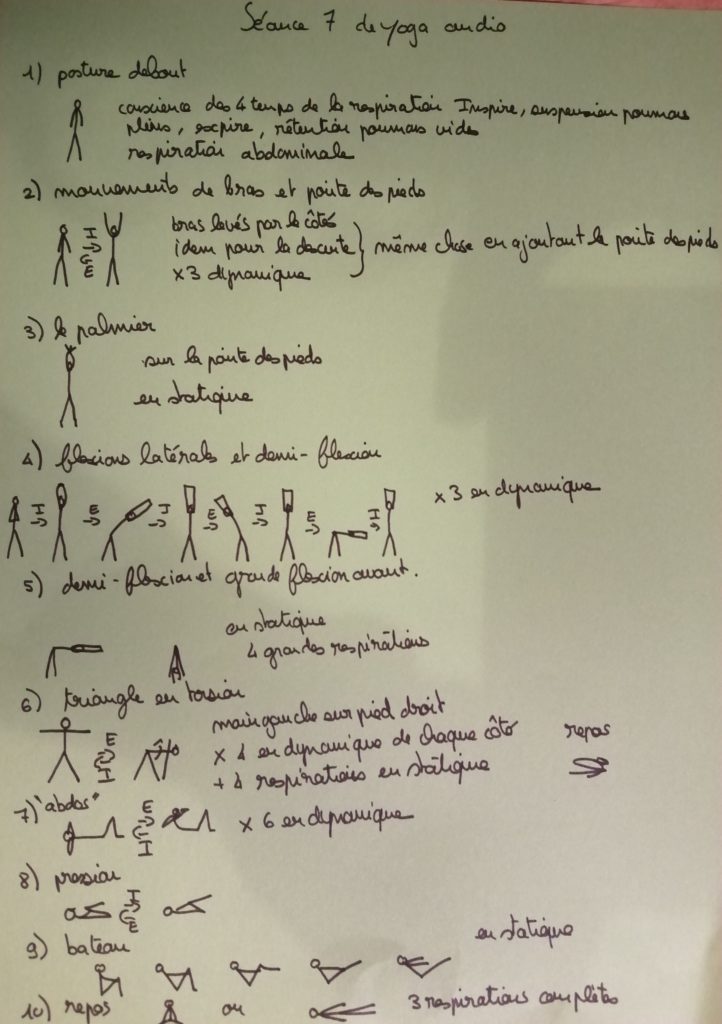 Séance 7 de yoga audio
1) posture debout
conscience des 4 temps de la respiration Inspire, suspension poumons
pleins, expire, rétention poumons vides
respiration abdominale
2) mouvements de bras et pointe des pieds
I
E
bras levés par le côté
idem pour la descente
x3 dynamique
même chose en ajoutant la pointe des pieds
3) le palmier
sur la pointe des pieds
en statique
4) flexions latérales et demi-flexion
I E I E I E I
x3 en dynamique
5) demi-flexion et grande flexion avant.
en statique
4 grandes respirations
6) triangle en torsion
E
I
main gauche sur pied droit
x 4 en dynamique de chaque côté
+ 4 respirations en statique
repos
7) "abdos"
E
I
x 6 en dynamique
8) pression
I
E
9) bateau
en statique
10) repos ou 3 respirations complètes